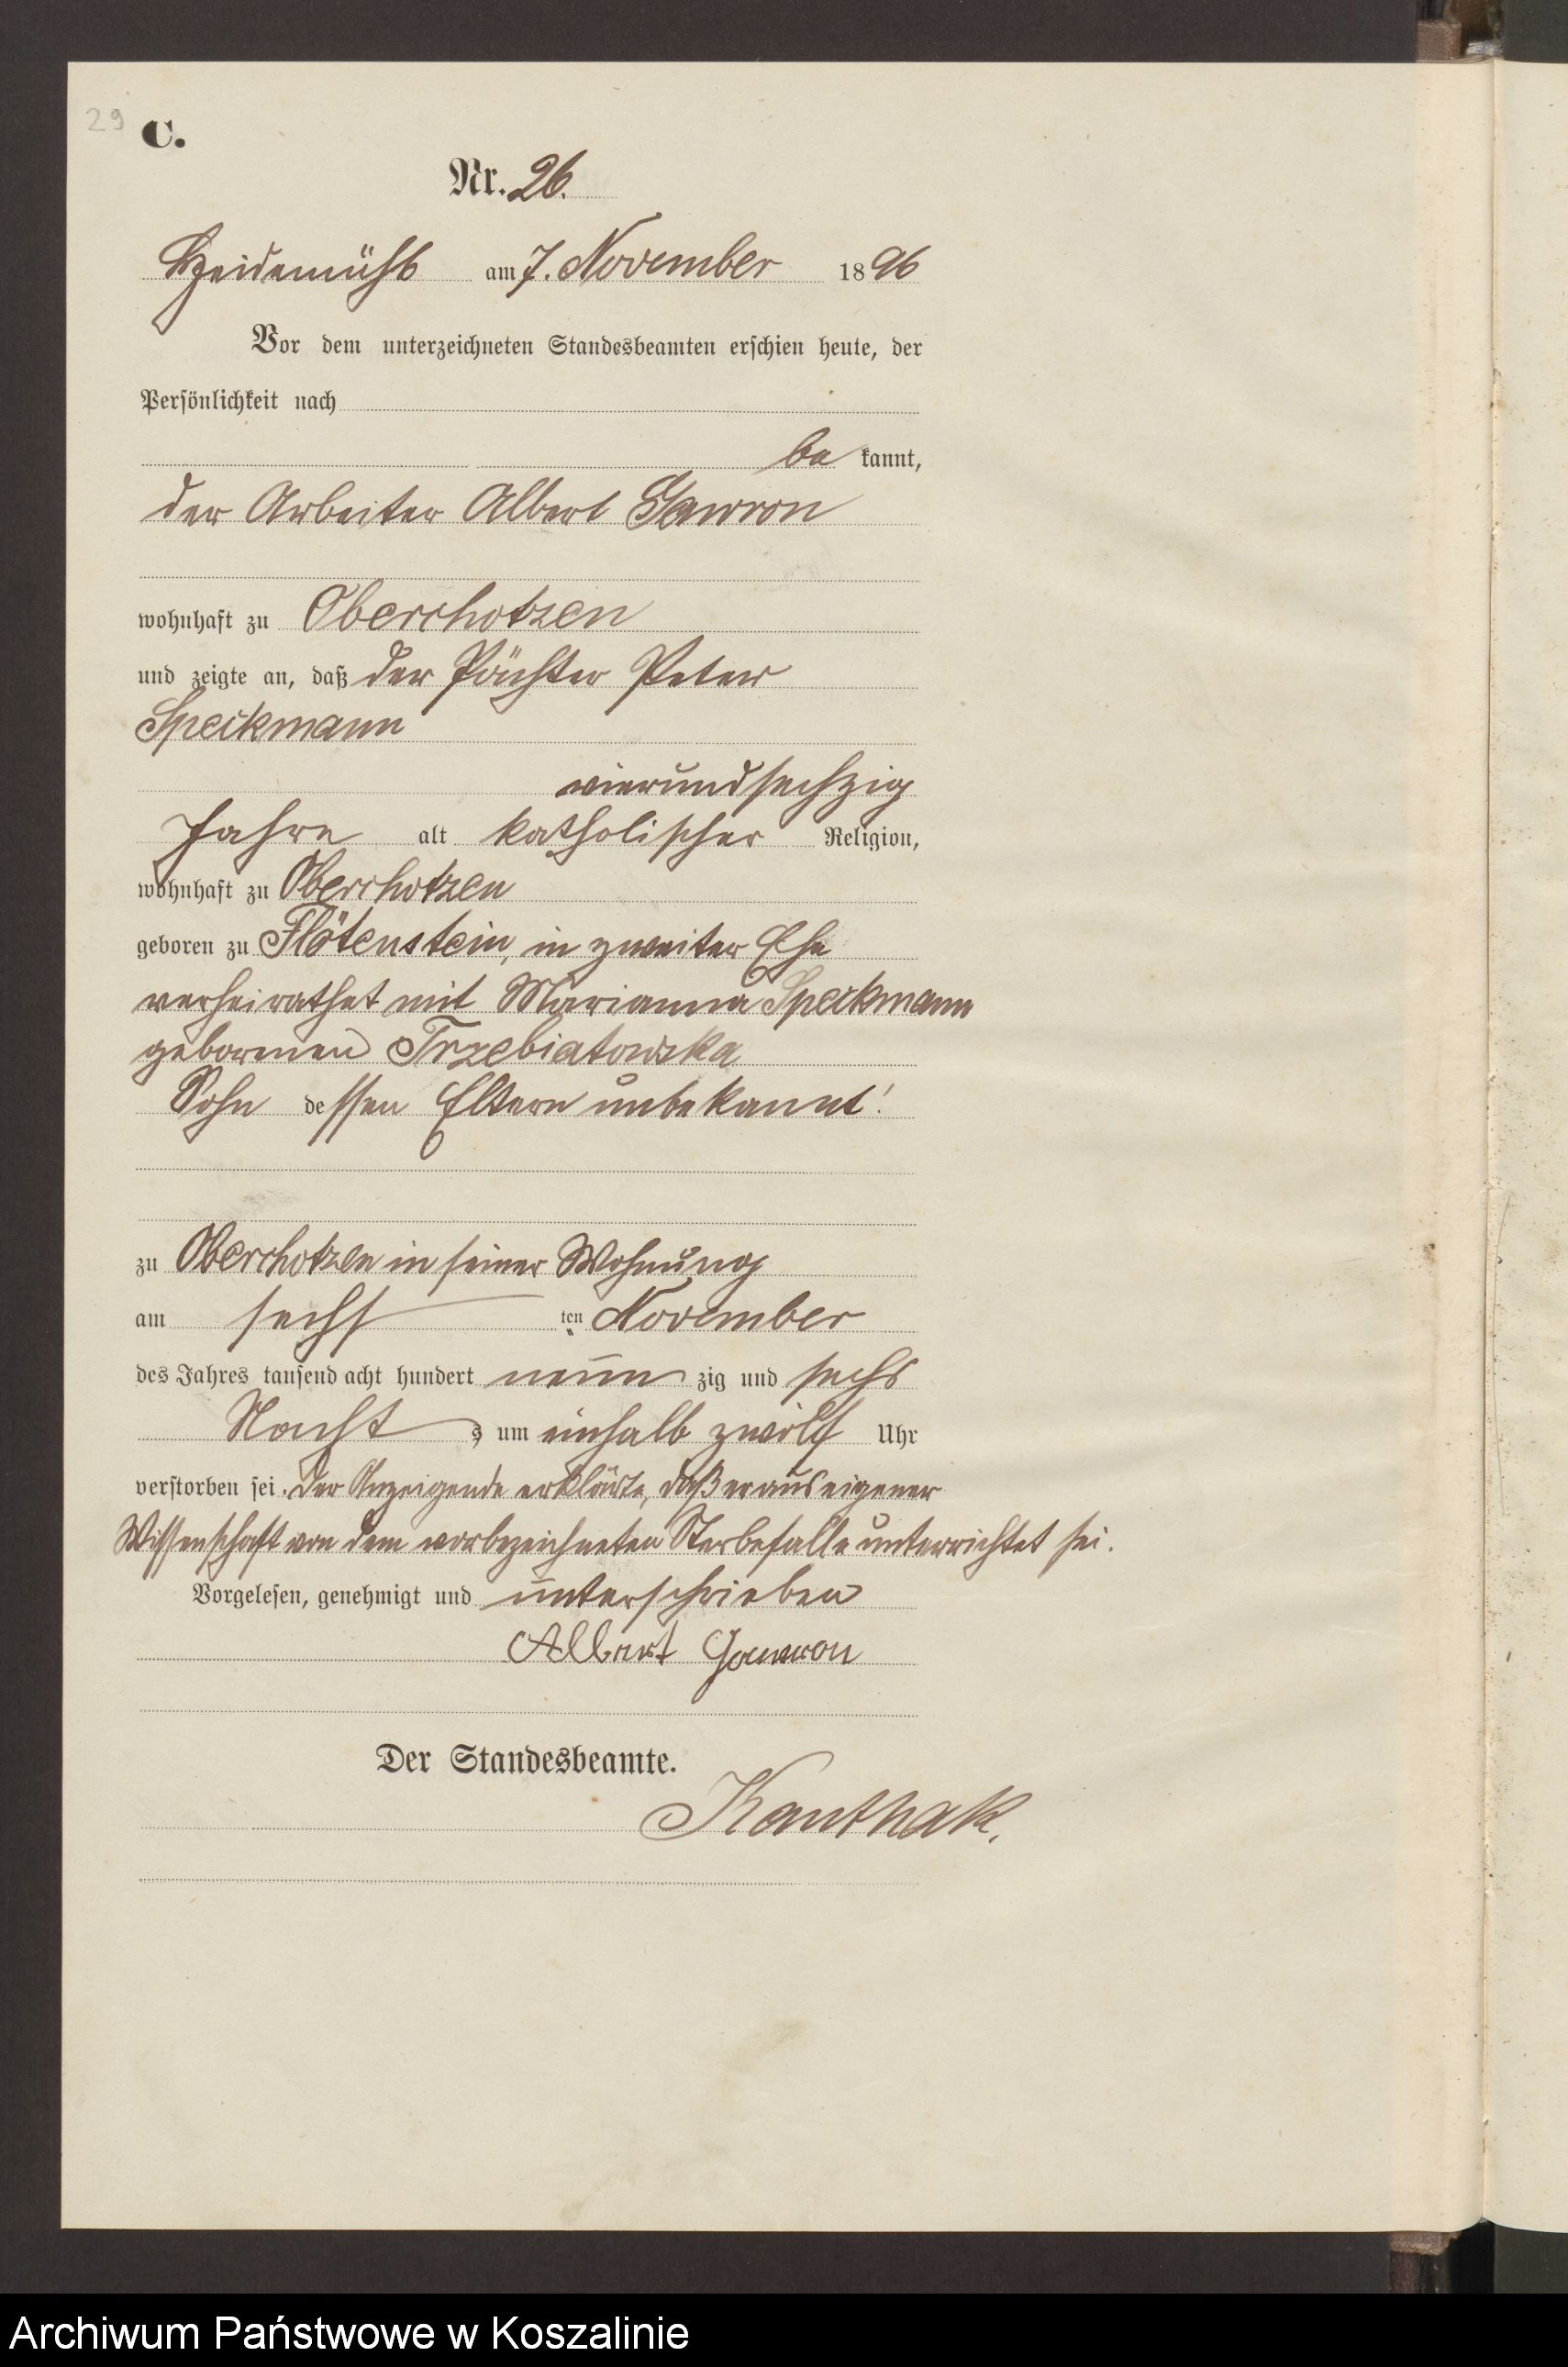 29
C.
Nr. 26.
Heidemühl am 7. November 1896
Vor dem unterzeichneten Standesbeamten erschien heute, der
Persönlichkeit nach
be kannt,
der Arbeiter Albert Gawron
wohnhaft zu Oberchotzen
und zeigte an, daß der Pächter Peter
Speckmann
vierundsechzig
Jahre alt katholischer Religion,
wohnhaft zu Oberchotzen
geboren zu Flötenstein, in zweiter Ehe
verheirathet mit Marianna Speckmann
geborenen Trzebiatowska
Sohn dessen Eltern unbekannt!
zu Oberchotzen in seiner Wohnung
am sechs ten November
des Jahres tausend acht hundert neun zig und sechs
Nacht s um einhalb zwölf Uhr
verstorben sei. Der Anzeigende erklärte, daß er aus eigener
Wissenschaft von dem vorbezeichneten Sterbefalle unterrichtet sei.
Vorgelesen, genehmigt und unterschrieben
Albert Gawron
Der Standesbeamte.
Kanthak.
Archiwum Państwowe w Koszalinie